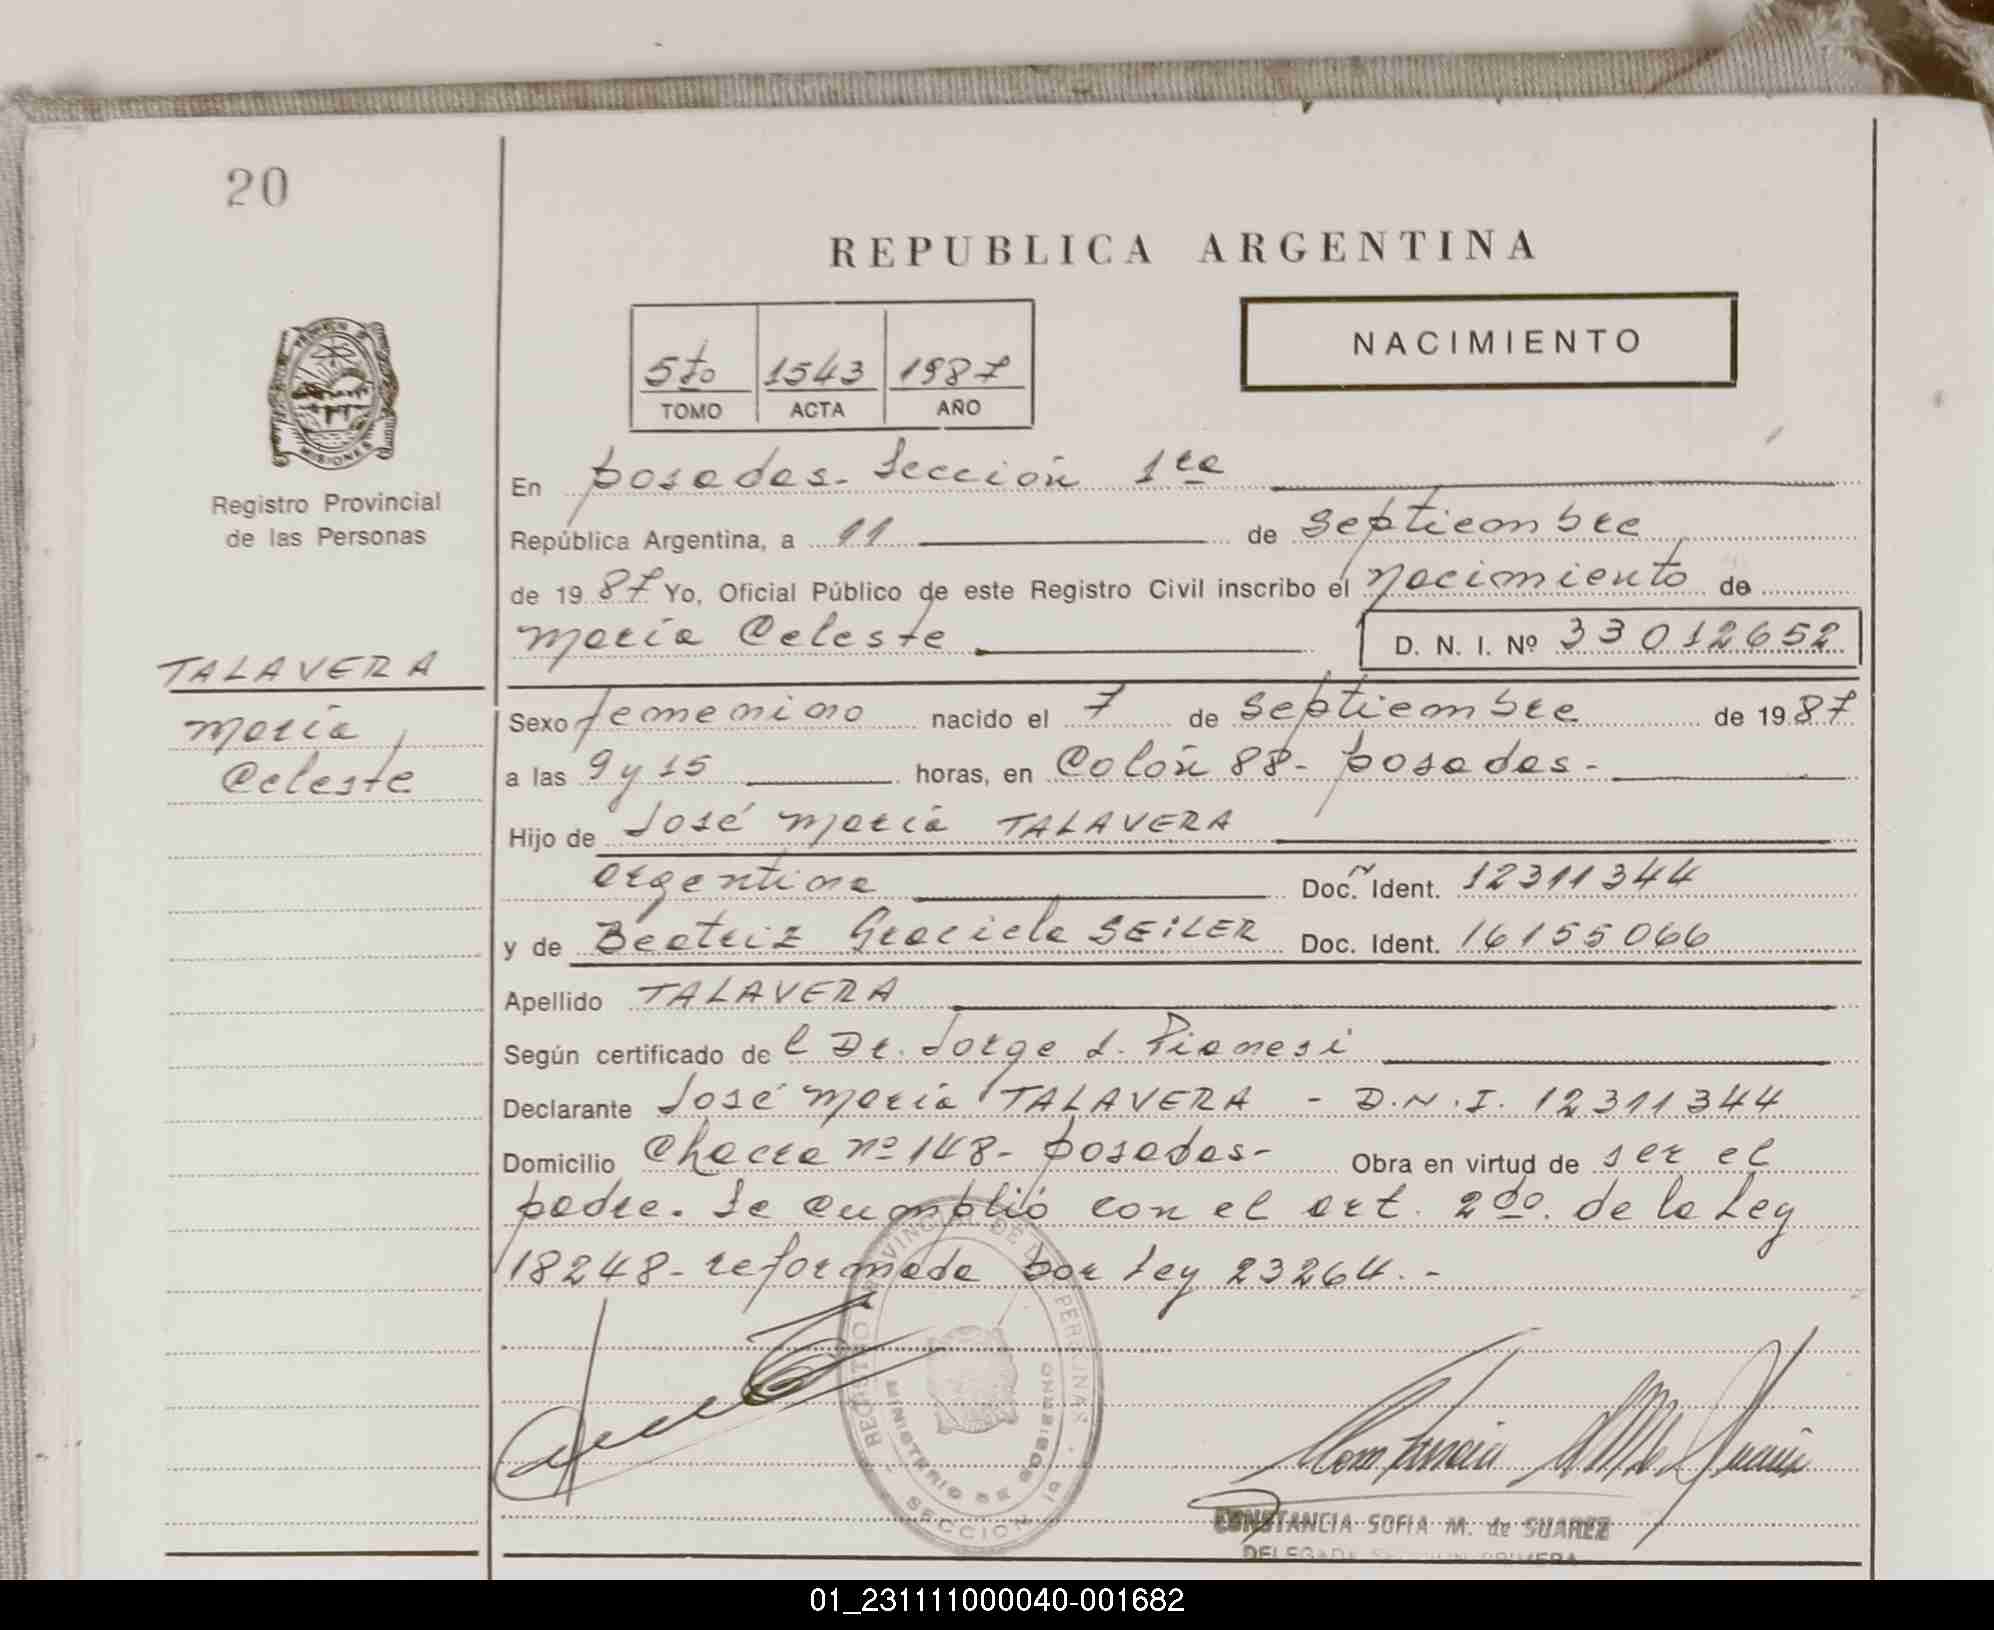 20
REPUBLICA ARGENTINA
NACIMIENTO
5to 1543 1987
TOMO ACTA AÑO
MISIONES
Registro Provincial
de las Personas
En Posadas - Sección 1ra
República Argentina, a 11 de septiembre
de 1987 Yo, Oficial Público de este Registro Civil inscribo el nacimiento de
María Celeste D. N. I. Nº 33012652
TALAVERA
María
Celeste
Sexo femenino nacido el 7 de septiembre de 1987
a las 9 y 15 horas, en Colón 88 - Posadas -
Hijo de José María TALAVERA
argentina Doc. Ident. 12311344
y de Beatriz Graciela SEiLER Doc. Ident. 16155066
Apellido TALAVERA
Según certificado de l Dr. Jorge L. Pianesi
Declarante José María TALAVERA - D.N.I. 12311344
Domicilio Chacra nº 148 - Posadas - Obra en virtud de ser el
padre. Se cumplió con el art. 2do. de la Ley
18248 - reformada por Ley 23264. -
REGISTRO PROVINCIAL DE PERSONAS
MINISTERIO DE GOBIERNO
SECCION 1a
CONSTANCIA SOFIA M. de SUAREZ
DELEGADA SECCION PRIMERA
01_231111000040-001682